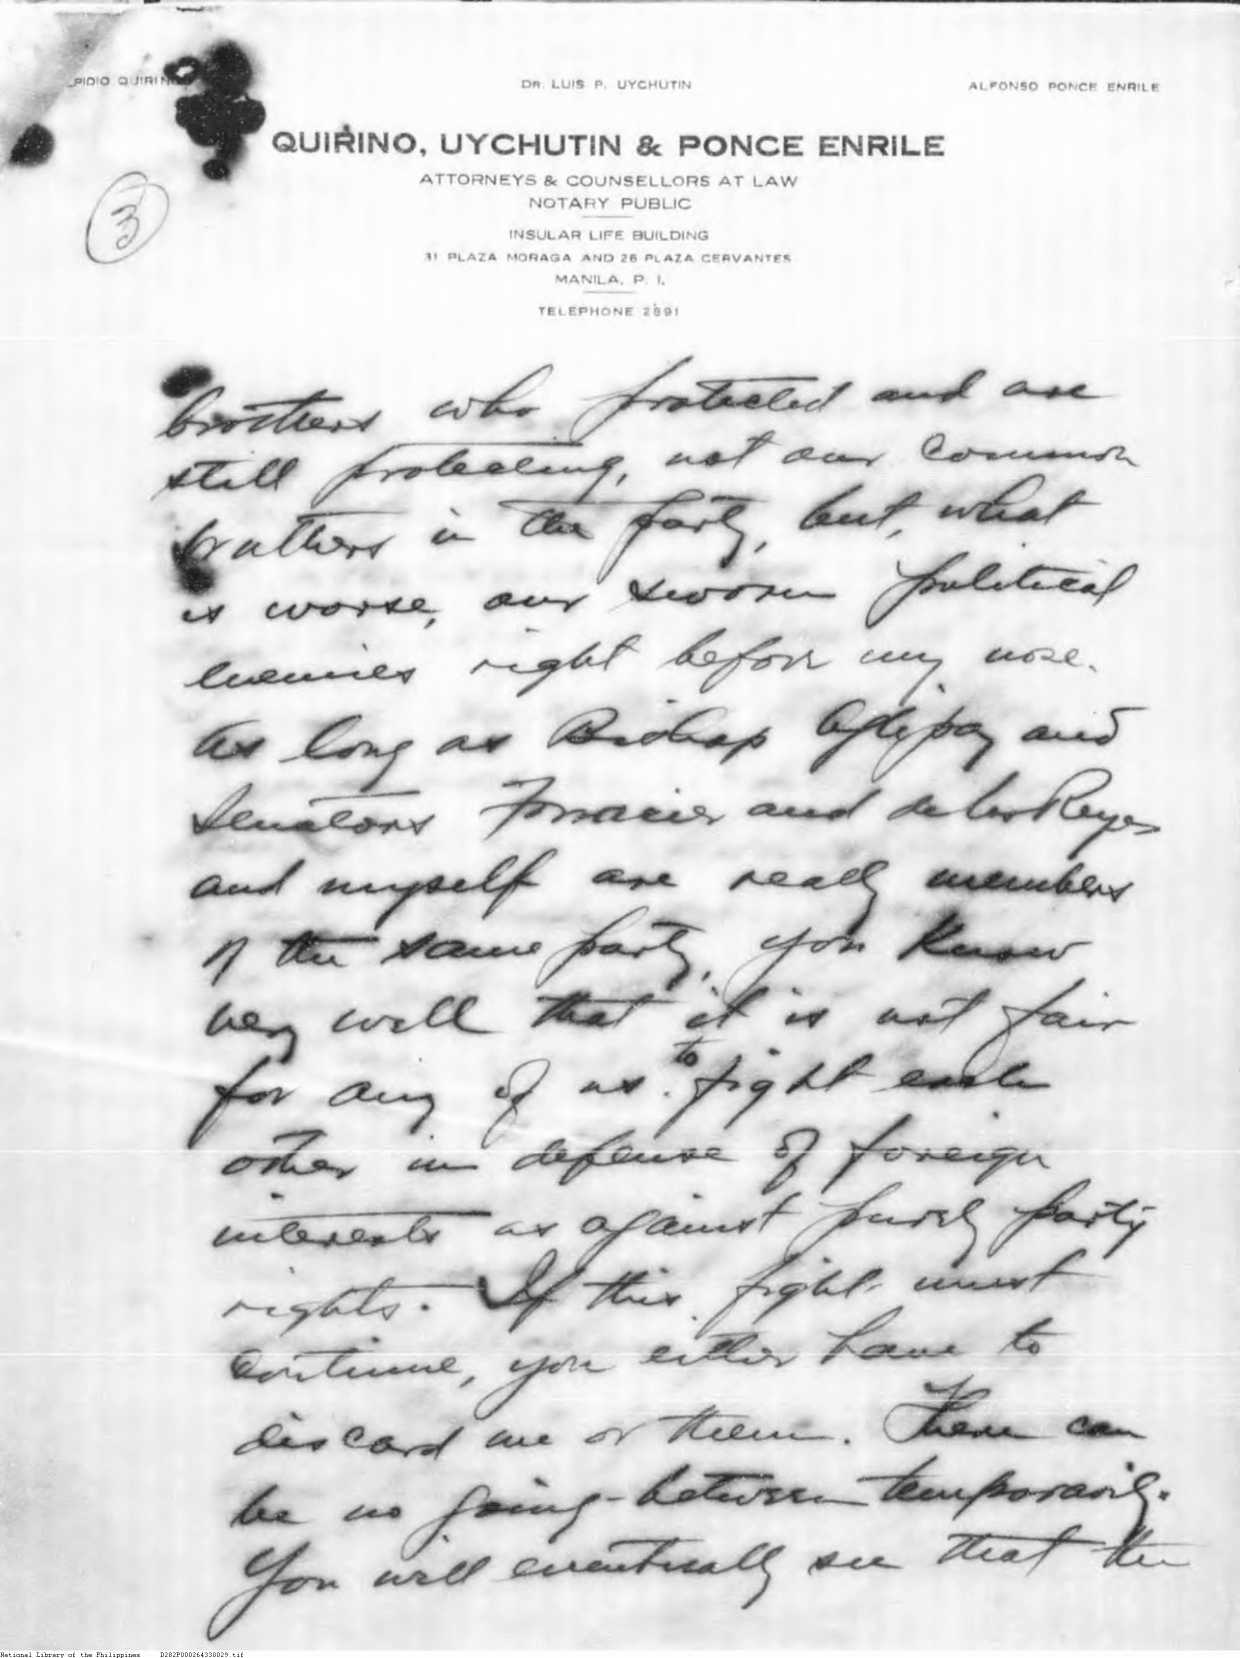 PIDIO QUIRINO
DR. LUIS P. UYCHUTIN
ALFONSO PONCE ENRILE
QUIRINO, UYCHUTIN & PONCE ENRILE
ATTORNEYS & COUNSELLORS AT LAW
NOTARY PUBLIC
INSULAR LIFE BUILDING
31 PLAZA MORAGA AND 26 PLAZA CERVANTES
MANILA, P. I.
TELEPHONE 2891
3
brothers who protected and are
still protecting, not our common
brothers in the party, but, what
is worse, our sworn political
enemies right before my nose.
As long as Bishop Aglipay and
Senators Formacier and de los Reyes
and myself are really members
of the same party, you know
very well that it is not fair
for any of us to fight each
other in defense of foreign
interests as against purely party
rights. If this fight must
continue, you either have to
discard me or them. There can
be no going-between temporarily.
You will eventually see that the
National Library of the Philippines D282P000264338029.tif